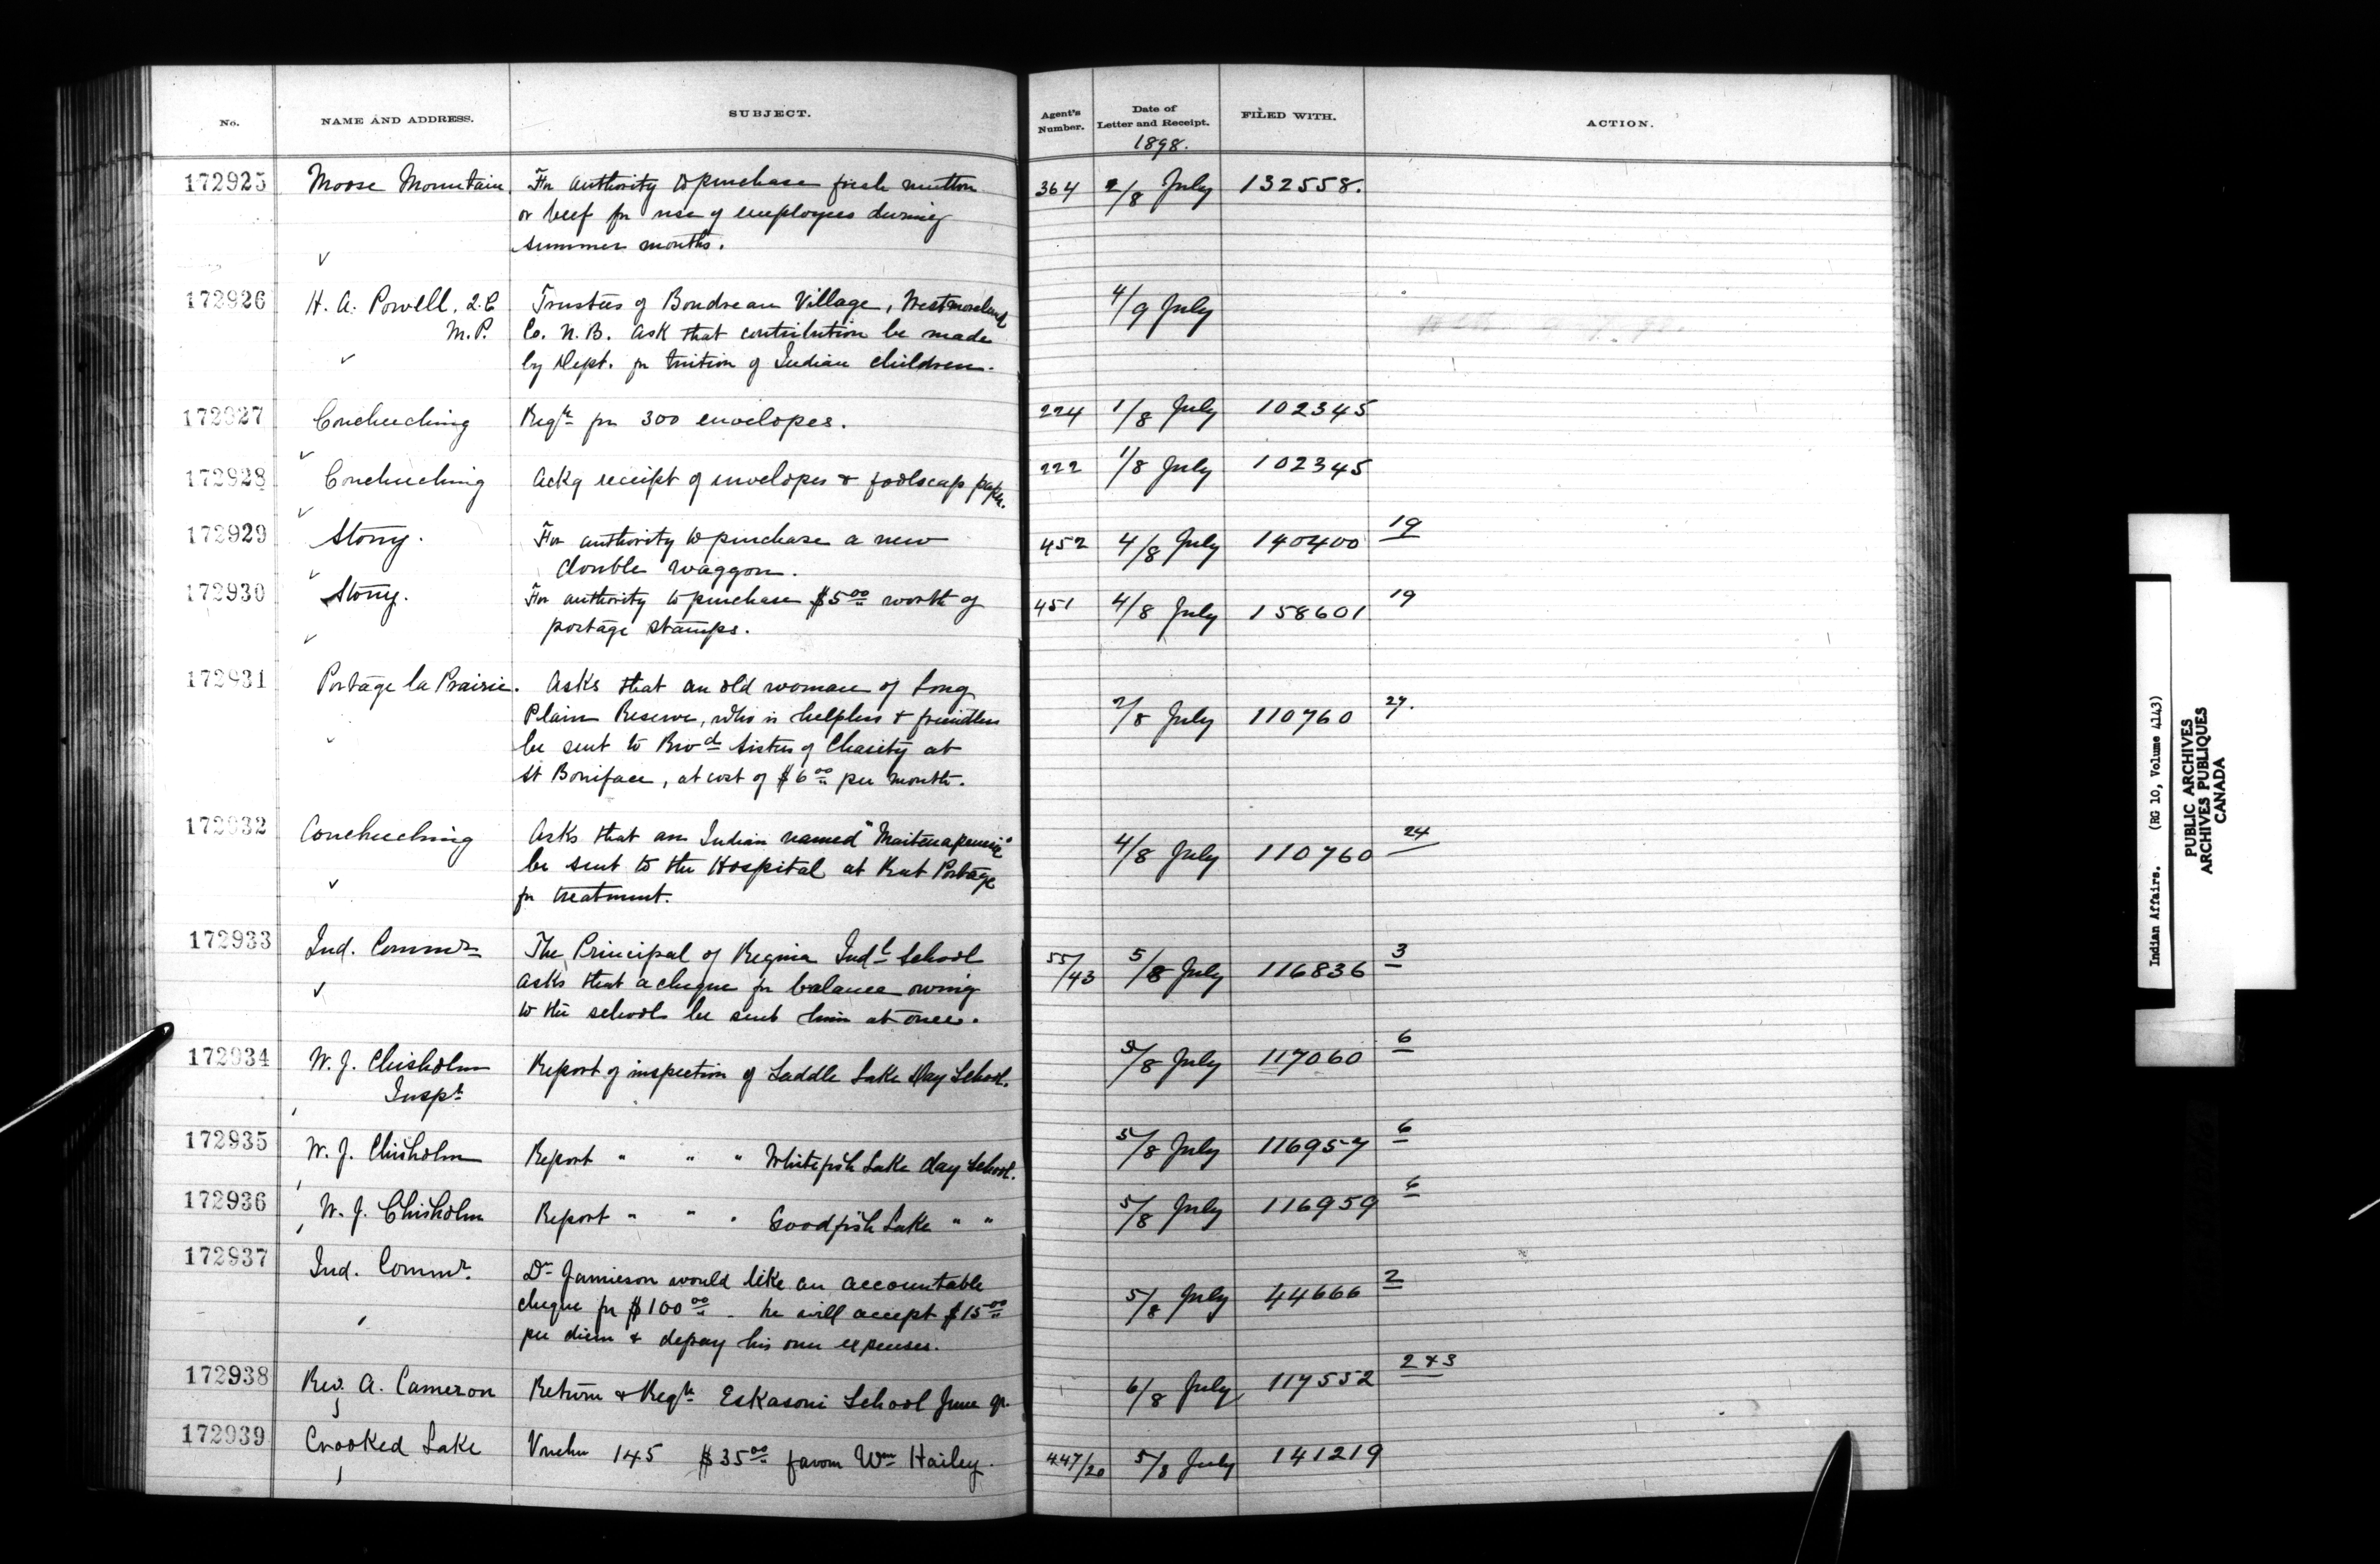 No. NAME AND ADDRESS. SUBJECT. Agent's Number. Date of Letter and Receipt. FILED WITH. ACTION.
1898.
172925 Moose Mountain For authority to purchase fresh mutton 364 2/8 July 132558.
or beef for use of employees during
summer months.
172926 H. A. Powell, Q.C. Trustees of Boudreau Village, Westmoreland 4/9 July
M.P. Co. N.B. ask that contribution be made
by Dept. for tuition of Indian children.
172927 Coucheeching Reqn for 300 envelopes. 224 1/8 July 102345
172928 Coucheeching Ackg receipt of envelopes & foolscap paper. 222 1/8 July 102345
172929 Stony. For authority to purchase a new 452 4/8 July 140400 19
double waggon.
172930 Stony. For authority to purchase $5.00 worth of 451 4/8 July 158601 19
postage stamps.
172931 Portage la Prairie. Asks that an old woman of Long
Plain Reserve, who is helpless & friendless 7/8 July 110760 27.
be sent to Sisters of Charity at
St Boniface, at cost of $6.00 per month.
172932 Coucheeching Asks that an Indian named 4/8 July 110760 24
be sent to the Hospital at Rat Portage
for treatment.
172933 Ind. Commr The Principal of Regina Indl School 55/43 5/8 July 116836 3
asks that a cheque for balance owing
to the school be sent him at once.
172934 W. J. Chisholm Report of inspection of Saddle Lake Day School. 5/8 July 117060 6
Inspr
172935 W. J. Chisholm Report " " " Whitefish Lake day School. 5/8 July 116957 6
172936 W. J. Chisholm Report " " " Goodfish Lake " " 5/8 July 116959 6
172937 Ind. Commr. Dr Jamieson would like an accountable 5/8 July 44666 2
cheque for $100.00 - he will accept $15.00
per diem & defray his own expenses.
172938 Rev. A. Cameron Return & Reqn Eskasoni School June qr. 6/8 July 117552 2 & 3
172939 Crooked Lake Voucher 145 $35.00 favour Wm Hailey. 447/20 5/8 July 141219
Indian Affairs. (RG 10, Volume 4143)
PUBLIC ARCHIVES
ARCHIVES PUBLIQUES
CANADA